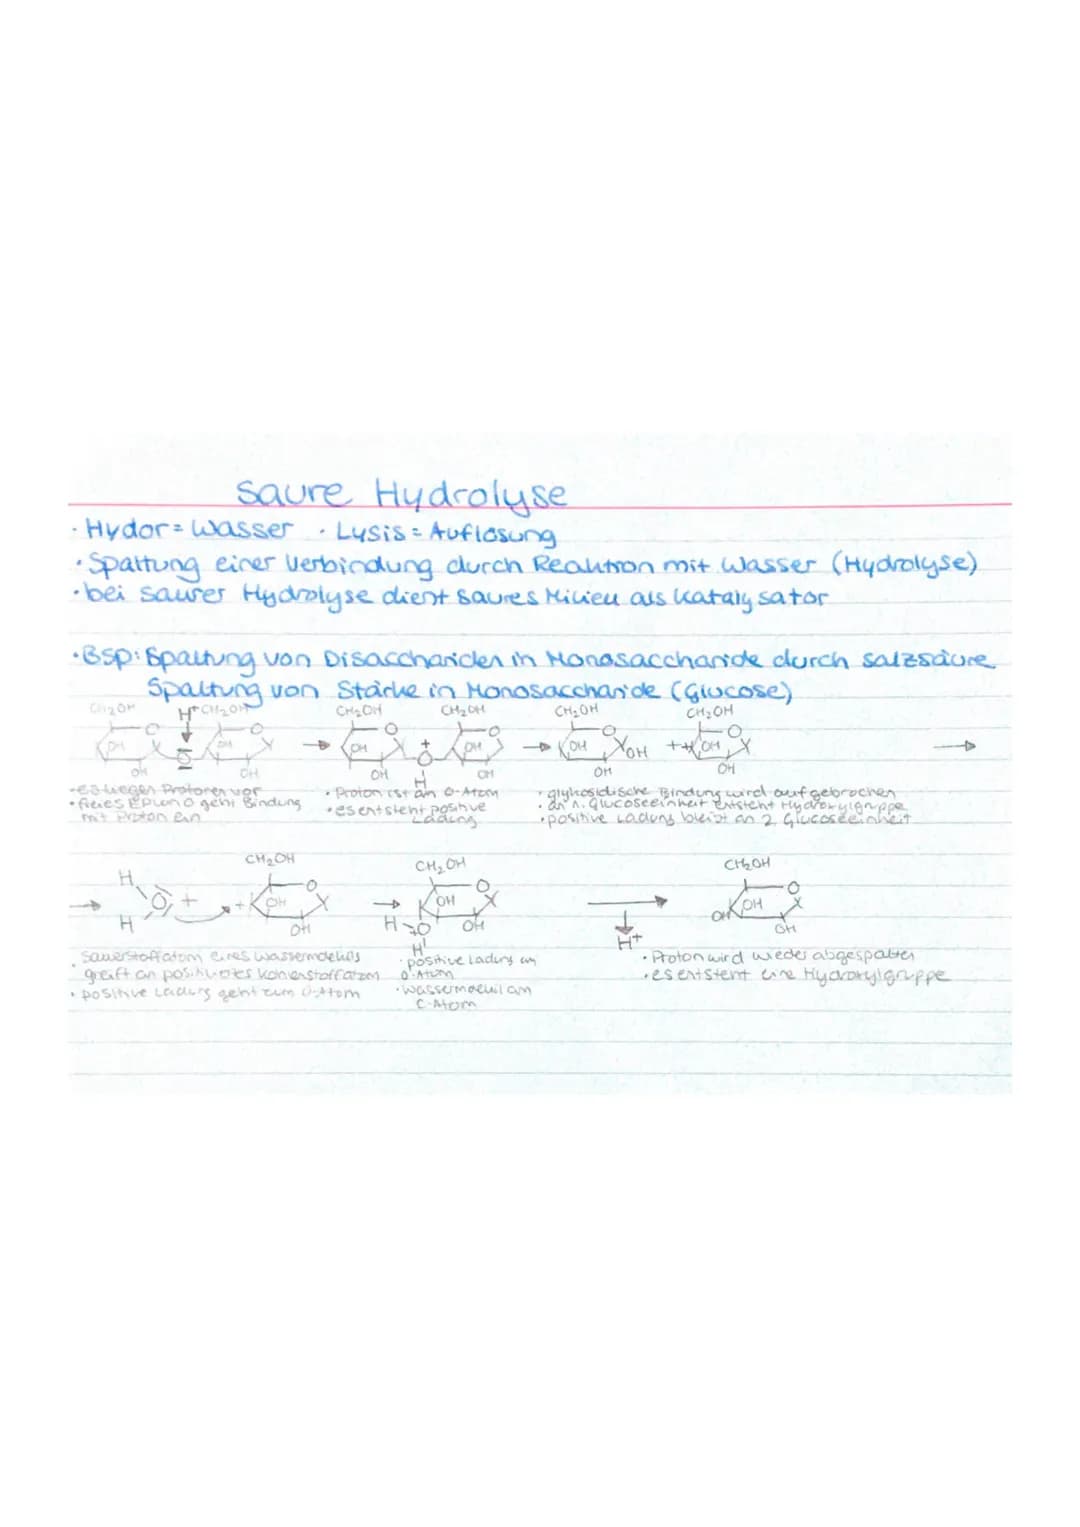 Saure Hydrolyse
· Hydor = Wasser · Lysis = Auflösung
· Spaltung einer Verbindung durch Reaktion mit Wasser (Hydrolyse)
· bei saurer Hydrolyse dient saures Milieu als Katalysator
· Bsp: Spaltung von Disacchariden in Monosaccharide durch Salzsäure
Spaltung von Stärke in Monosaccharide (Glucose)
CH₂OH H⁺ CH₂OH CH₂OH CH₂OH CH₂OH CH₂OH
O O O O O O
OH O OH → OH + O OH → OH OH + + OH →
OH OH OH H OH OH OH
· es liegen Protonen vor
· freies EP von O geht Bindung
mit Proton ein
· Proton ist am O-Atom
· es entsteht positive
Ladung
· glykosidische Bindung wird aufgebrochen
· an 1. Glucoseeinheit entsteht Hydroxylgruppe
· positive Ladung bleibt an 2. Glucoseeinheit
CH₂OH CH₂OH CH₂OH
H O O O
→ O + + OH → OH → OH OH
H OH H O OH H⁺ OH
H
· Sauerstoffatom eines Wassermoleküls
greift an positiviertes Kohlenstoffatom
· positive Ladung geht zum O-Atom
· positive Ladung am
O-Atom
· Wassermolekül am
C-Atom
· Proton wird wieder abgespalten
· es entsteht eine Hydroxylgruppe